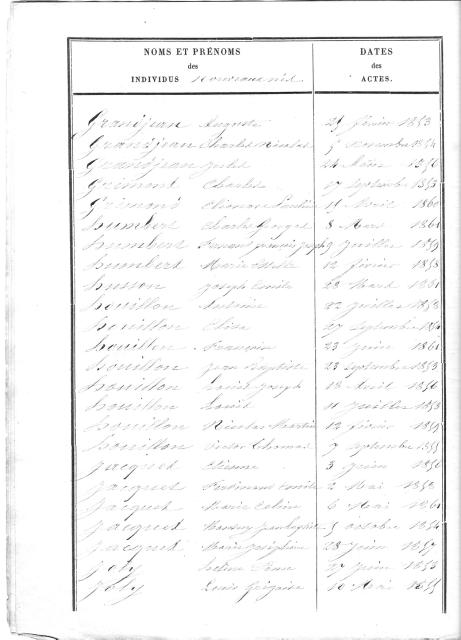 NOMS ET PRÉNOMS DATES
des des
INDIVIDUS Nouveaux nés ACTES.
Grandjean Auguste février 1853
Grandjean Charles Nicolas novembre 1854
Grandjean Jules 24 Mars 1856
Grimont Charles 17 septembre 1855
Grimont Avril 1860
humbert Charles Georges 8 Mars 1861
humbert Joseph 9 Juillet 1859
humbert Marie 12 février 1853
husson Joseph Emile 22 Mars 1861
houillon 22 Juillet 1853
houillon Elisa 27 septembre
houillon 23 Juin 1861
houillon Jean Baptiste 23 septembre 1853
houillon Louis Joseph 18 Avril 1856
houillon Louis 11 Juillet 1853
houillon Nicolas Martin 12 février 1859
houillon Victor Thomas 7 septembre 1855
Jacquet Etienne 3 Juin 1856
Jacquet Ferdinand Emile 2 Mai
Jacquet Marie 6 Mai 1861
Jacquet octobre 1854
Jacquet Marie 28 Juin 1857
Joly 27 Juin 1853
Joly Louis Grégoire 10 Mai 1855